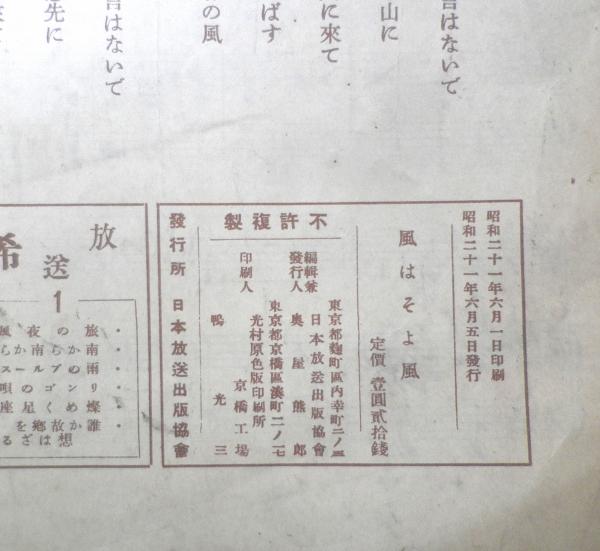 言はないで
山に
に來て
ばす
の風
言はないで
先に
昭和二十一年六月一日印刷
昭和二十一年六月五日發行
風はそよ風
定價 壹圓貳拾錢
不許複製
東京都麴町區內幸町二ノ三
日本放送出版協會
編輯兼發行人 奥屋熊郎
東京都京橋區湊町二ノ一七
光村原色版印刷所
京橋工場
印刷人 鴨光三
發行所 日本放送出版協會
放送
希
1
・旅の夜風
・南から南から
・雨のブルース
・リンゴの唄
・燦めく星座
・誰か故鄕を
想はざる